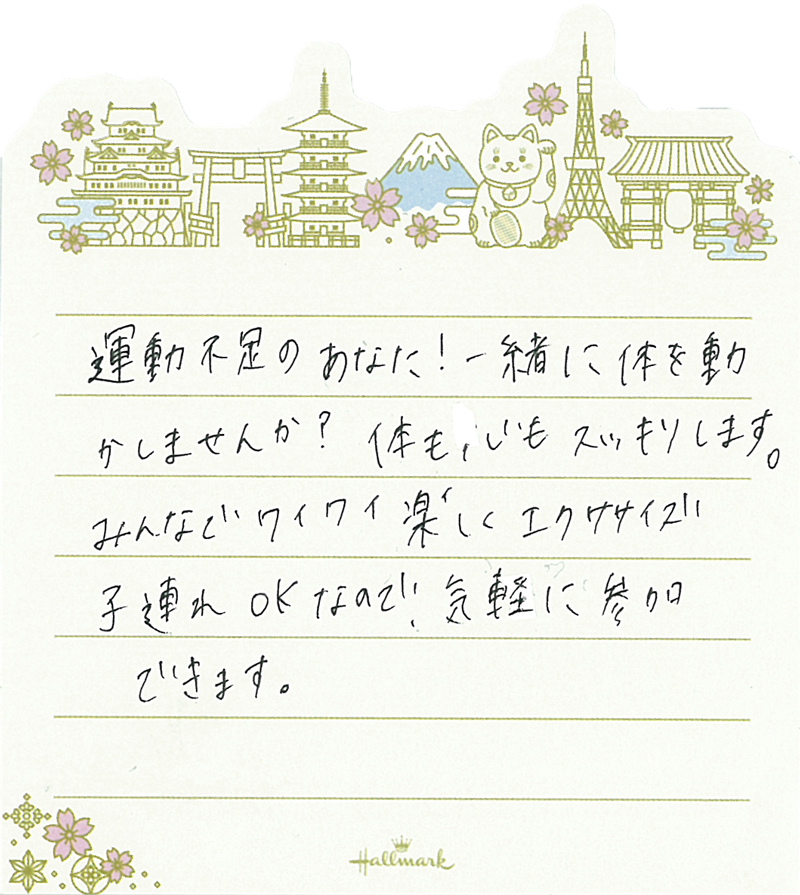 運動不足のあなた！一緒に体を動
かしませんか？ 体も心もスッキリします。
みんなでワイワイ楽しくエクササイズ
子連れOKなので、気軽に参加
できます。
Hallmark